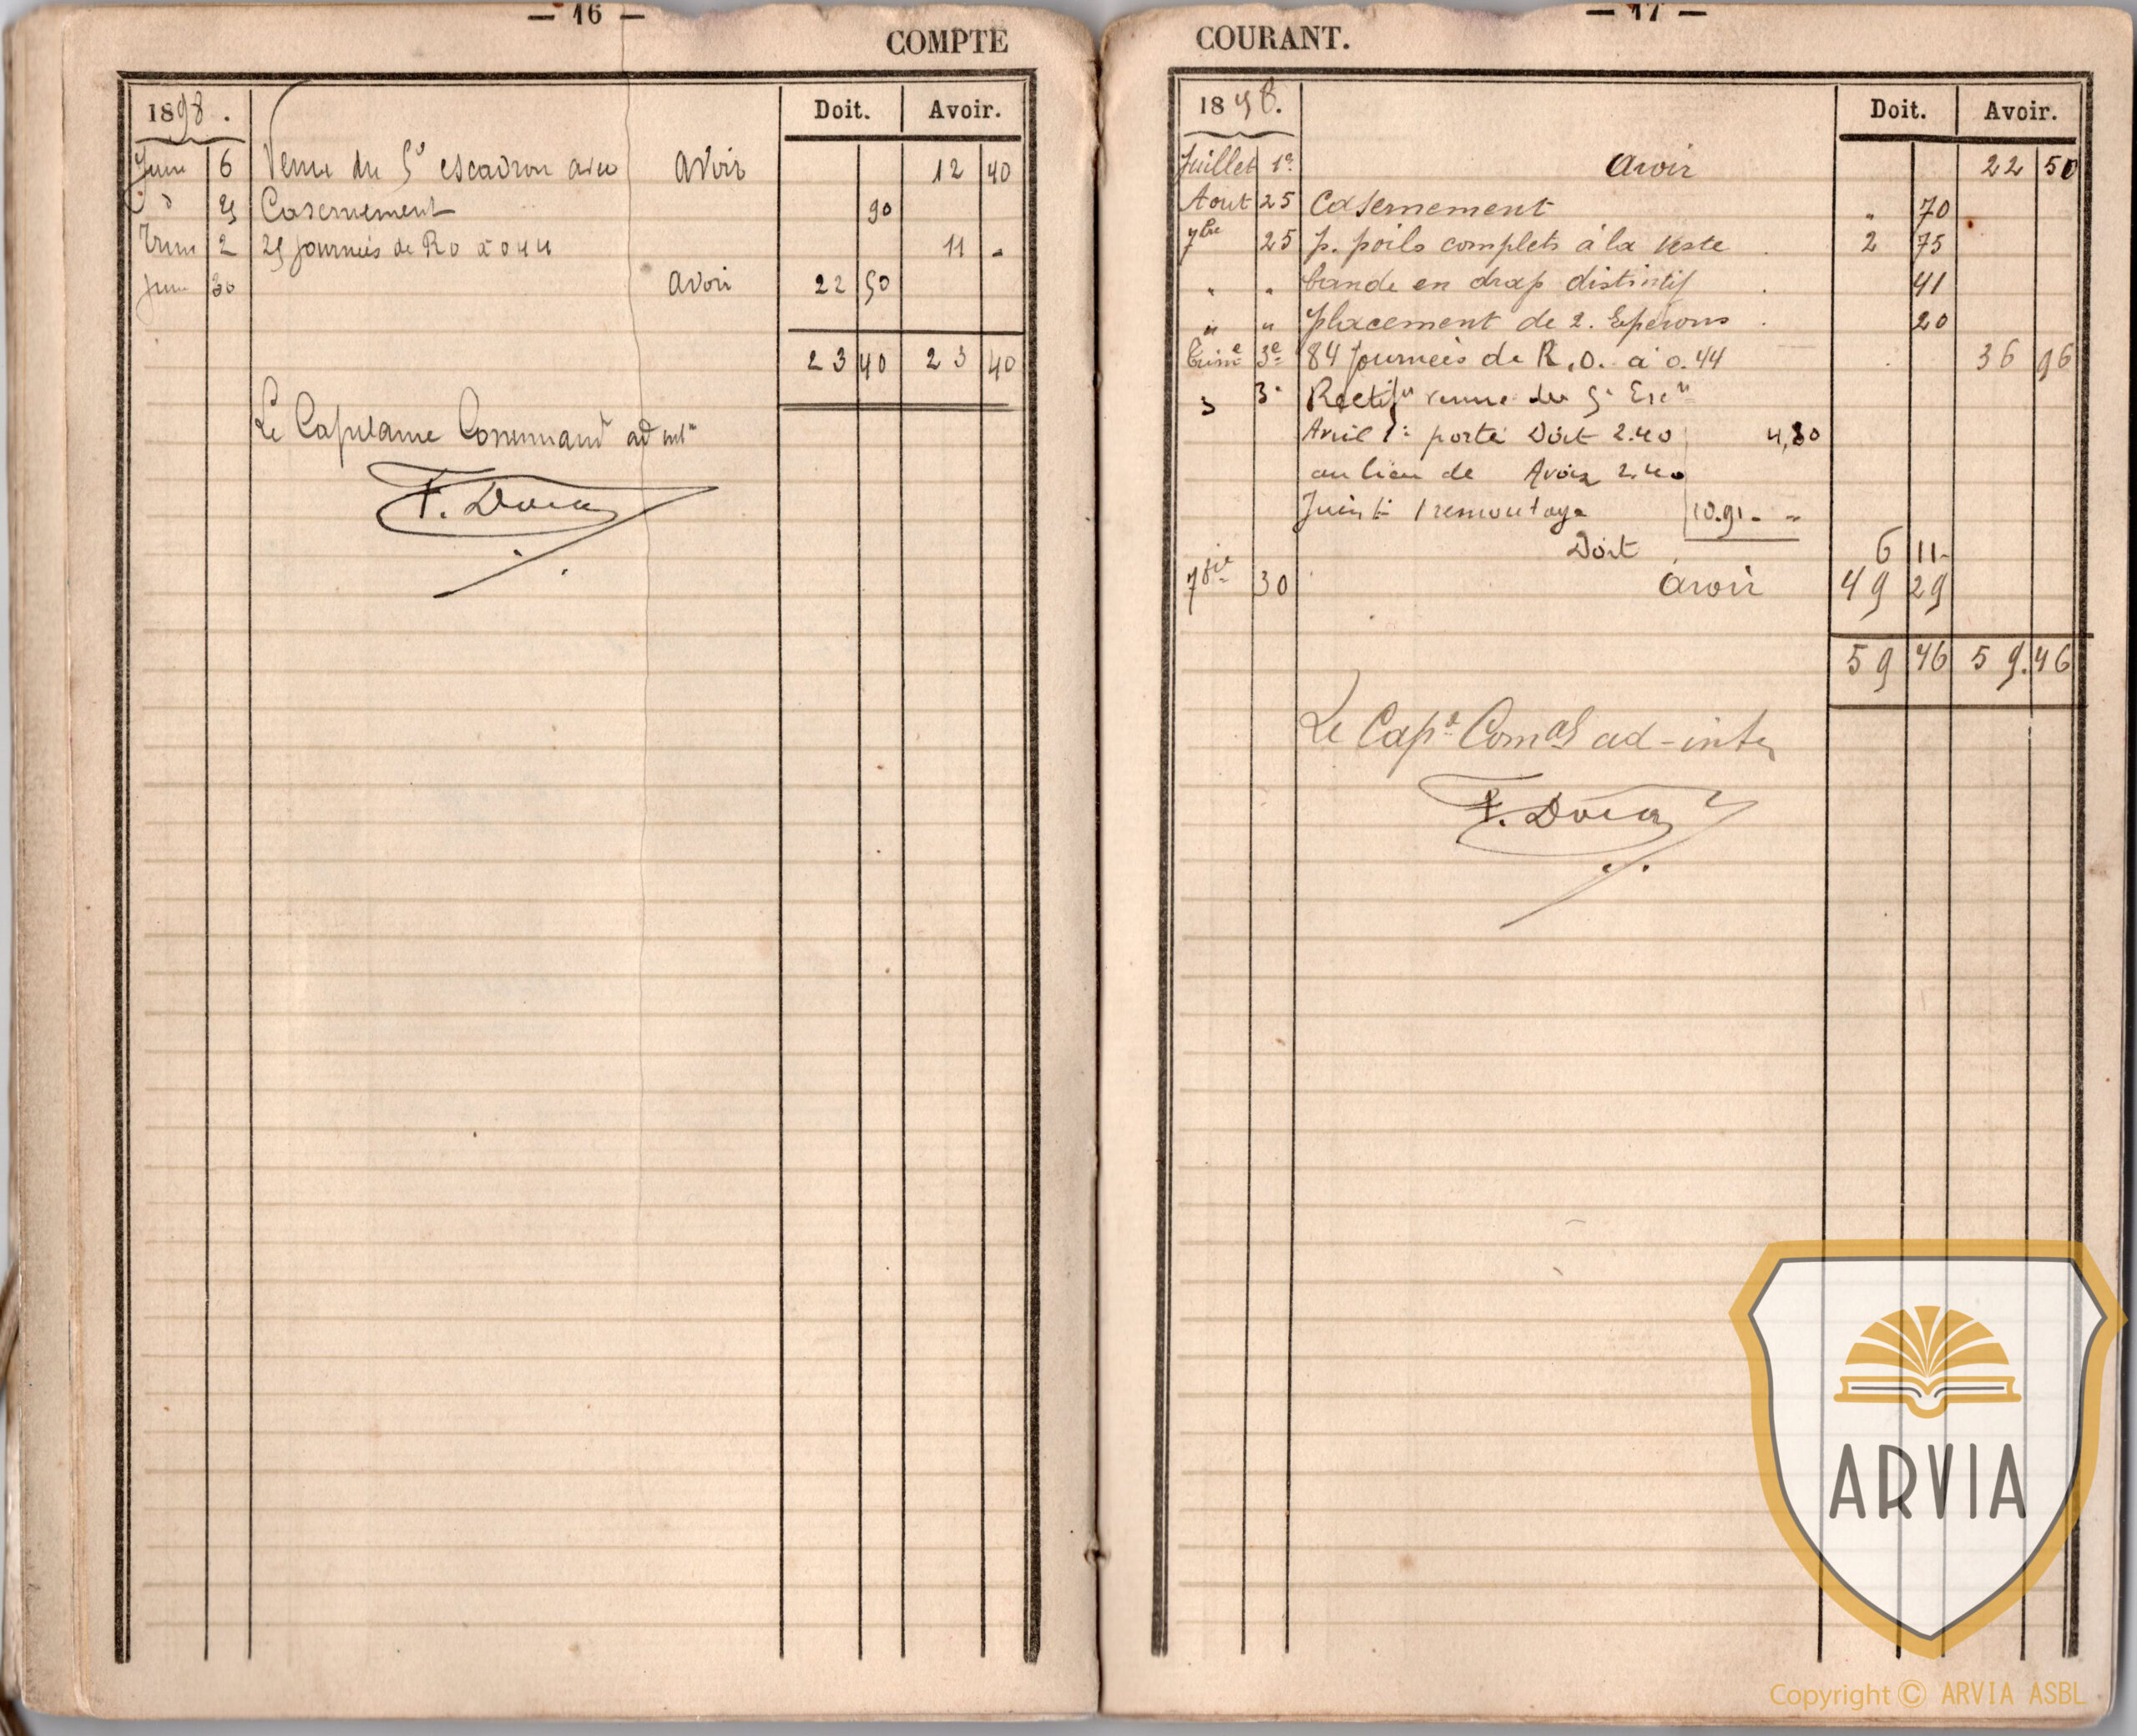 — 16 —
COMPTE
1898.
Doit. Avoir.
Juin 6 Venu du 5e escadron avec avoir 12 40
" 25 Casernement 90
Trim 2 25 journées de RO à 0 44 11 -
Juin 30 avoir 22 50
23 40 23 40
Le Capitaine Command ad int
— 17 —
COURANT.
1898.
Doit. Avoir.
Juillet 1er avoir 22 50
Aout 25 Casernement " 70
7bre 25 p. poils complets à la veste . 2 75
" " bande en drap distintif . 41
" " placement de 2. Eperons . 20
Trime 3e 84 journées de R.O. à 0.44 36 96
3e Rectifon venue du 5e Escon
Avril 1er porté Doit 2.40 4,80
au lieu de Avoir 2.40
Juin 1 remontage 10.91
Doit 6 11
7bre 30 avoir 49 29
59 46 59.46
Le Cape Comdt ad-inter
ARVIA
Copyright © ARVIA ASBL